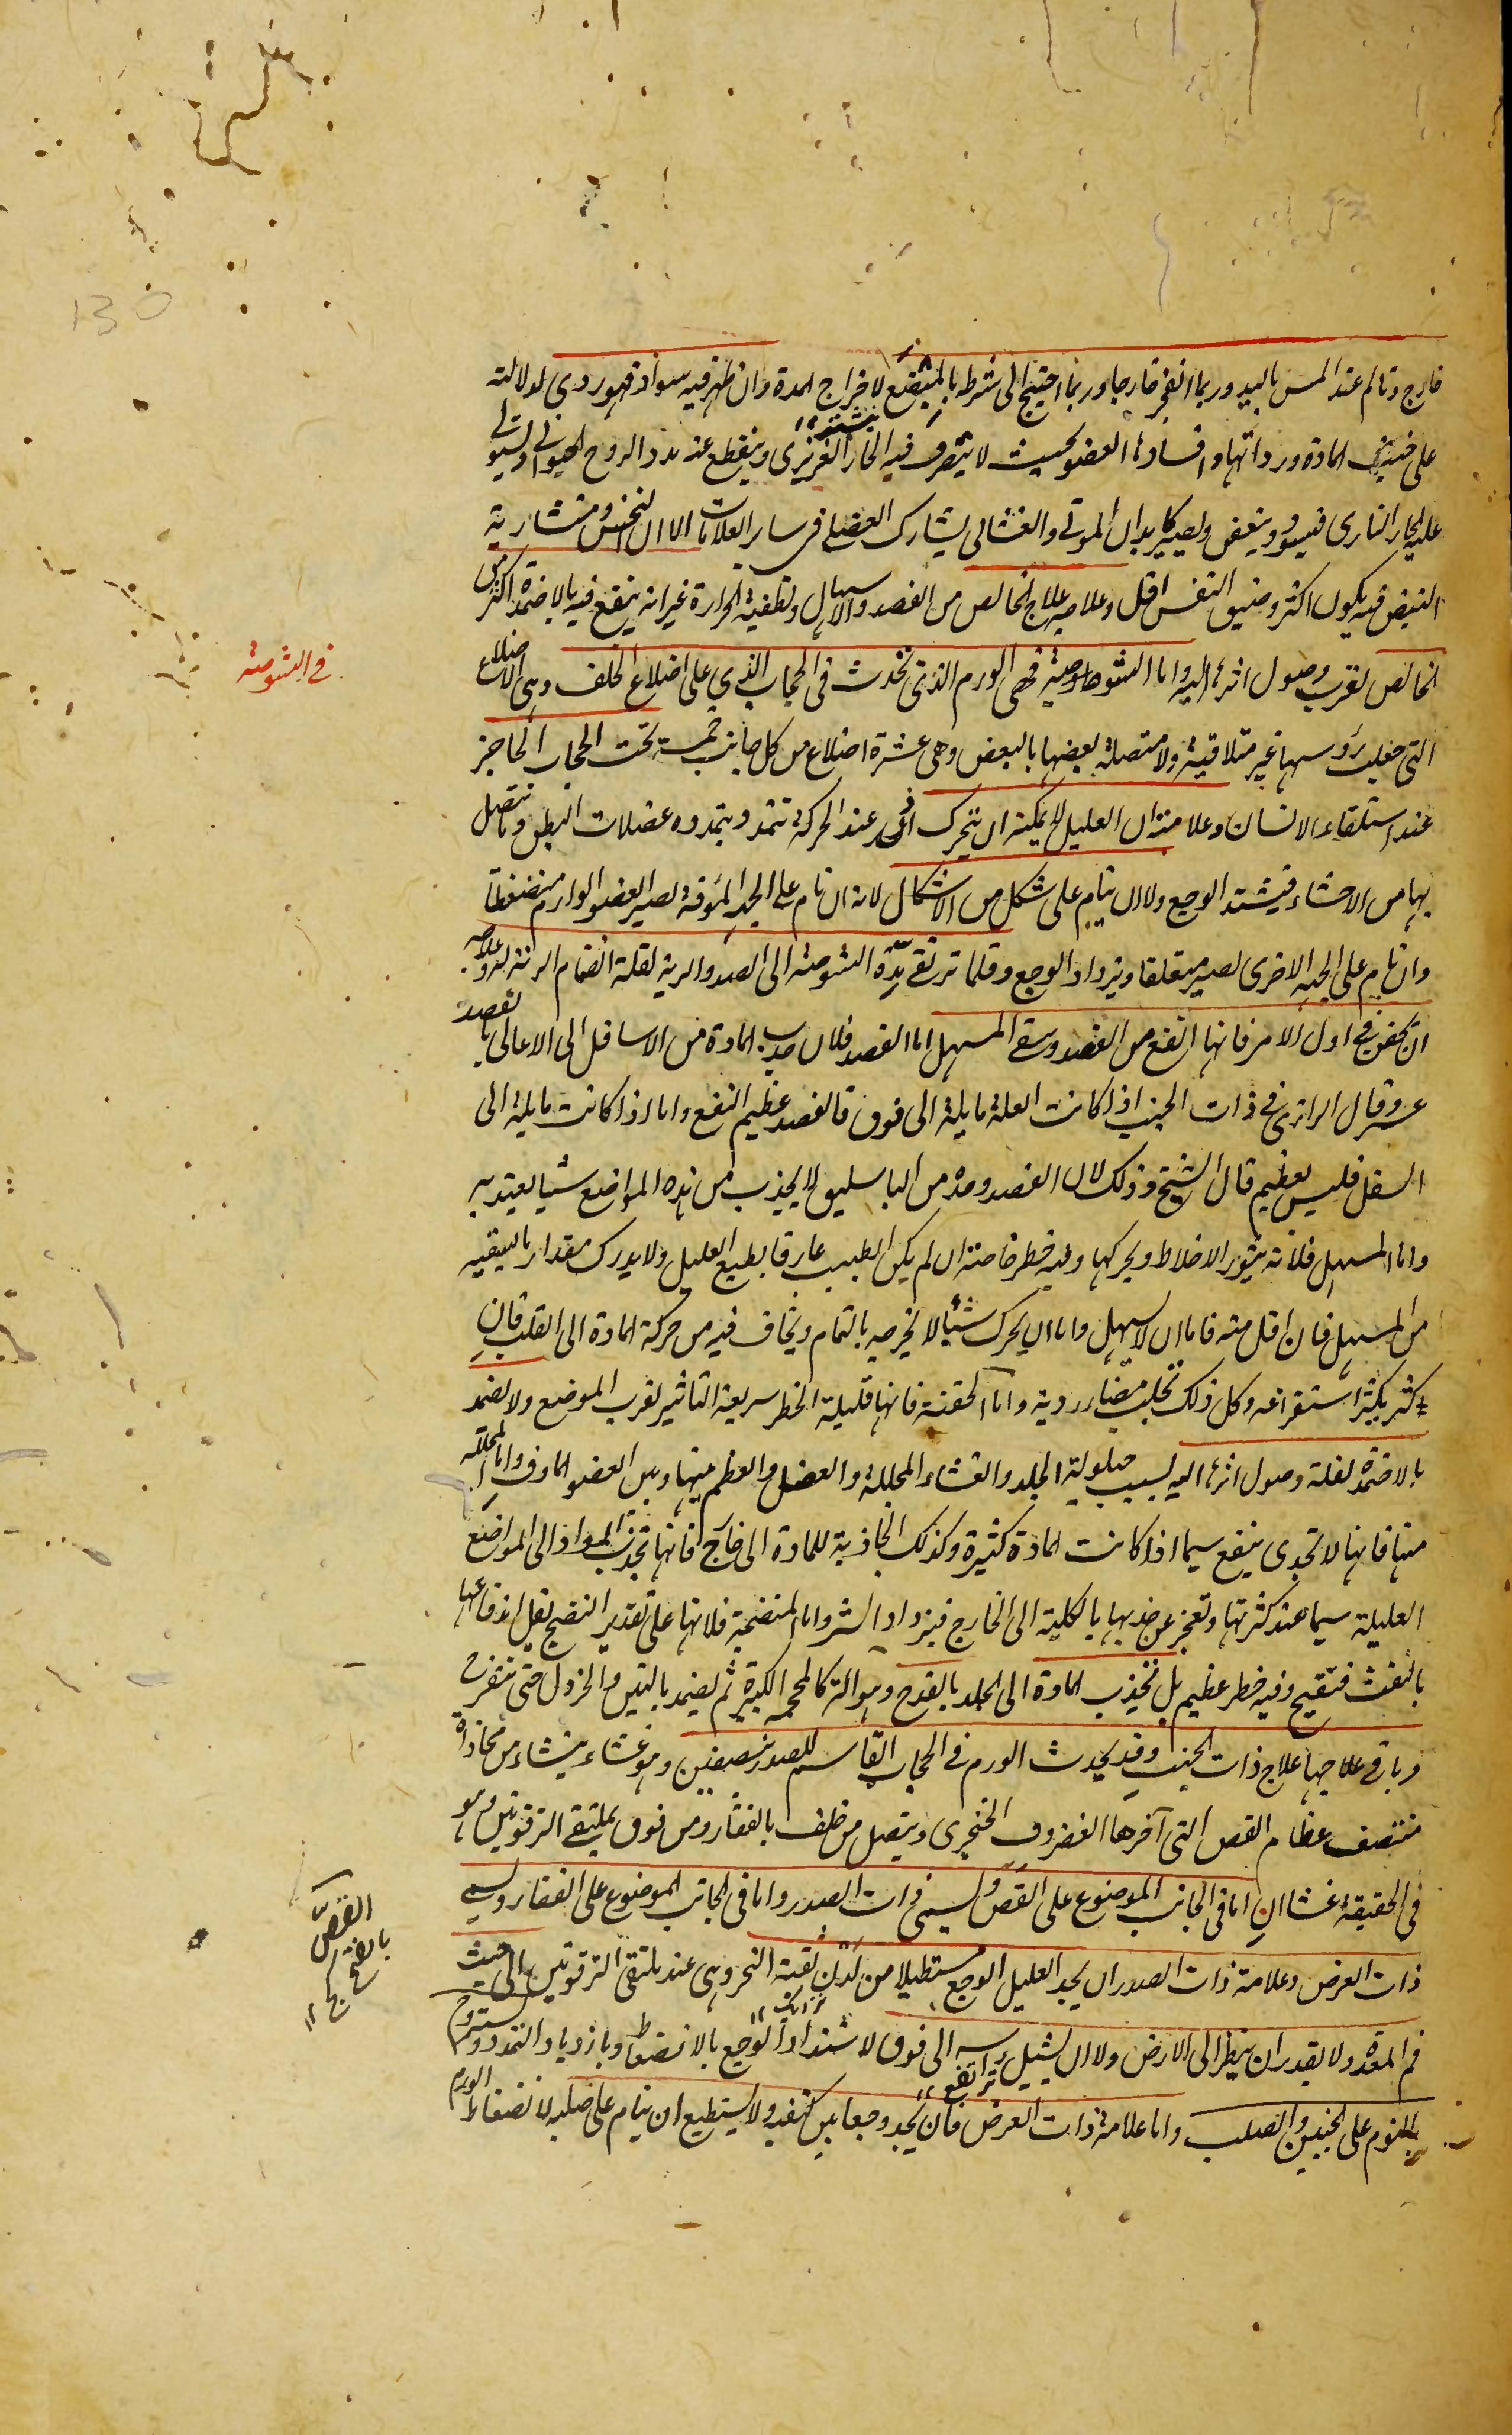 خارج وتالم عند المس باليد وربما انفجر خارجا وربما احتيج الى شرطه بالمبضع لاخراج المدة وان ظهر فيه سواد فهو ردى لدلالته
على خبث المادة وردائتها وافسادها العضو بحيث لا يتصرف فيه الحار الغريزى وينقطع عنه مدد الروح الحيوانى ويستولى
عليه الحار النارى فيسود ويتعفن ويصير كابدان الموتى والغشائى يشارك العضلى فى ساير العلامات الا ان النخس ومنشارية
النبض فيه يكون اكثر وضيق التنفس اقل وعلاجه علاج الخالص من الفصد والاسهال وتطفية الحرارة غير انه ينتفع فيه بالاضمدة اكثر من
الخالص لقرب وصول اثرها اليه واما الشوصة فهى الورم الذى تحدث فى الحجاب الذي على اضلاع الخلف وهى الاضلاع
فى الشوصة
التى جعلت رؤسها غير متلاقية ولا متصلة بعضها بالبعض وهى عشرة اضلاع من كل جانب خمسة تحت الحجاب الحاجز
عند استلقاء الانسان وعلامته ان العليل لا يمكنه ان يتحرك اذ عند الحركة تتمدد بتمدده عضلات البطن وما يتصل
بها من الاحشاء فيشتد الوجع ولا ان ينام على شكل من الاشكال لانه ان نام على الجنب المؤفة يصير العضو الوارم منضغطا
وان نام على الجنب الاخرى يصير معلقا ويزداد الوجع وقلما ترتقى مدة الشوصة الى الصدر والرية لقلة انضمام الرية له وعلاجه
ان يحقن فى اول الامر فانها انفع من الفصد وسقى المسهل اما الفصد فلان جذب المادة من الاسافل الى الاعالى بالفصد
عسر وقال الرازى فى ذات الجنب اذا كانت العلة مايلة الى فوق فالفصد عظيم النفع واما اذا كانت مايلة الى
السفل فليس بعظيم قال الشيخ وذلك لان الفصد وحده من الباسليق لا يجذب من هذه المواضع شيا يعتد به
واما المسهل فلانه يثور الاخلاط ويحركها وفيه خطر خاصة ان لم يكن الطبيب عارفا بطبع العليل ولا يدرك مقدار ما يسقيه
من المسهل فان اقل منه فاما ان لا يسهل واما ان يحرك شيا لا يخرجه بالتمام ويخاف فيه من حركة المادة الى القلب فان
اكثر يكثر استفراغه وكل ذلك يجلب مضار ردية واما الحقنة فانها قليلة الخطر سريعة التاثير لقرب الموضع ولا يضمد
بالاضمدة لقلة وصول اثرها اليه بسبب حيلولة الجلد والغشاء المجللة والعضل والعظم بينها وبين العضو الماوف واما المحللة
منها فانها لا تجدى بنفع سيما اذا كانت المادة كثيرة وكذلك الجاذبة للمادة الى خارج فانها تجذب المواد الى المواضع
العليلة سيما عند كثرتها وتعجز عن جذبها بالكلية الى الخارج فيزداد الشر واما المنضجة فلانها على تقدير النضج يقل اندفاعها
بالنفث فتقيح وفيه خطر عظيم بل تجذب المادة الى الجلد بالقدح وهو آلة كالمحجمة الكبيرة ثم يضمد بالتين والخردل حتى يتقرح
وباقى علاجها علاج ذات الجنب وقد يحدث الورم فى الحجاب القاسم للصدر بنصفين وهو غشاء ينشاء من محاذاة
منتصف عظام القص التى آخرها الغضروف الخنجرى ويتصل من خلف بالفقار ومن فوق بملتقى الترقوتين وهو
فى الحقيقة غشاان اما فى الجانب الموضوع على القص ويسمى ذات الصدر واما فى الجانب الموضوع على الفقار ويسمى
القصّ
بالفتح
ذات العرض وعلامة ذات الصدر ان يجد العليل الوجع مستطيلا من لدن ثقبة النحر وهى عند ملتقى الترقوتين الى حيث
فم المعدة ولا يقدر ان ينظر الى الارض ولا ان يشيل راسه الى فوق لاشتداد الوجع بالانضغاط وبازدياد التمدد ويستروح
بالنوم على الجنبين والصلب واما علامة ذات العرض فان يجد وجعا بين كتفيه ولا يستطيع ان ينام على صلبه لانضغاط الورم